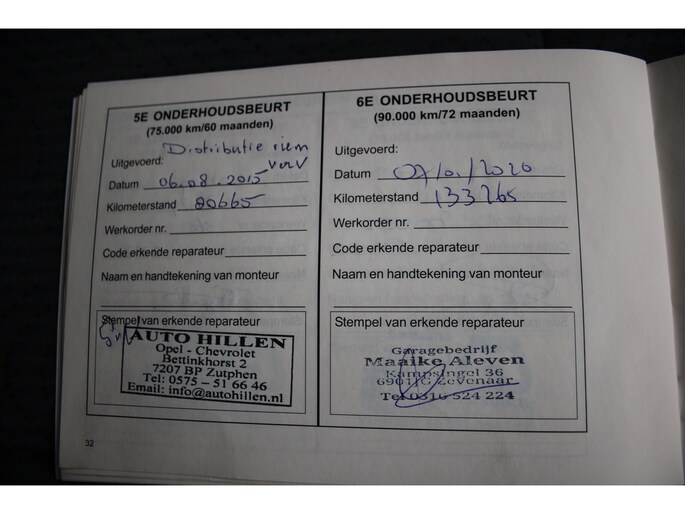 5E ONDERHOUDSBEURT
(75.000 km/60 maanden)
Distributie riem
Uitgevoerd: verv
Datum 06.08.2015
Kilometerstand 80665
Werkorder nr.
Code erkende reparateur
Naam en handtekening van monteur
Stempel van erkende reparateur
AUTO HILLEN
Opel - Chevrolet
Bettinkhorst 2
7207 BP Zutphen
Tel: 0575 - 51 66 46
Email: info@autohillen.nl
32
6E ONDERHOUDSBEURT
(90.000 km/72 maanden)
Uitgevoerd:
Datum 07/01/2020
Kilometerstand 133265
Werkorder nr.
Code erkende reparateur
Naam en handtekening van monteur
Stempel van erkende reparateur
Garagebedrijf
Maaike Aleven
Kampsingel 36
Zevenaar
Tel 0316 524 224